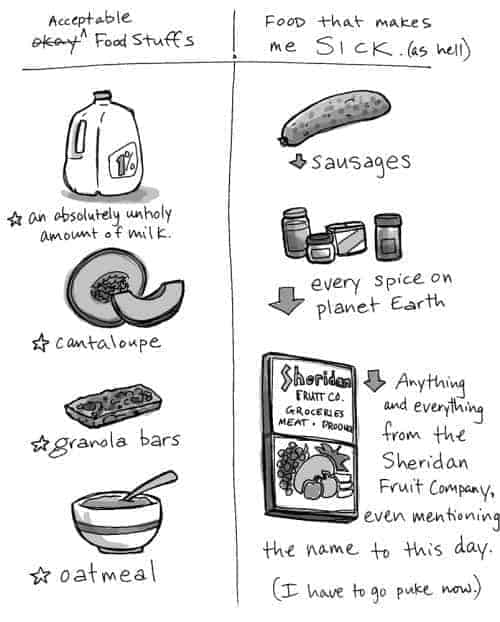 Acceptable
okay ^ Food Stuffs
Food that makes
me SICK. (as hell)
1%
an absolutely unholy
amount of milk.
cantaloupe
granola bars
oatmeal
sausages
every spice on
planet Earth
Sheridan
FRUIT CO.
GROCERIES
MEAT • PRODUCE
Anything
and everything
from the
Sheridan
Fruit Company,
even mentioning
the name to this day.
(I have to go puke now.)